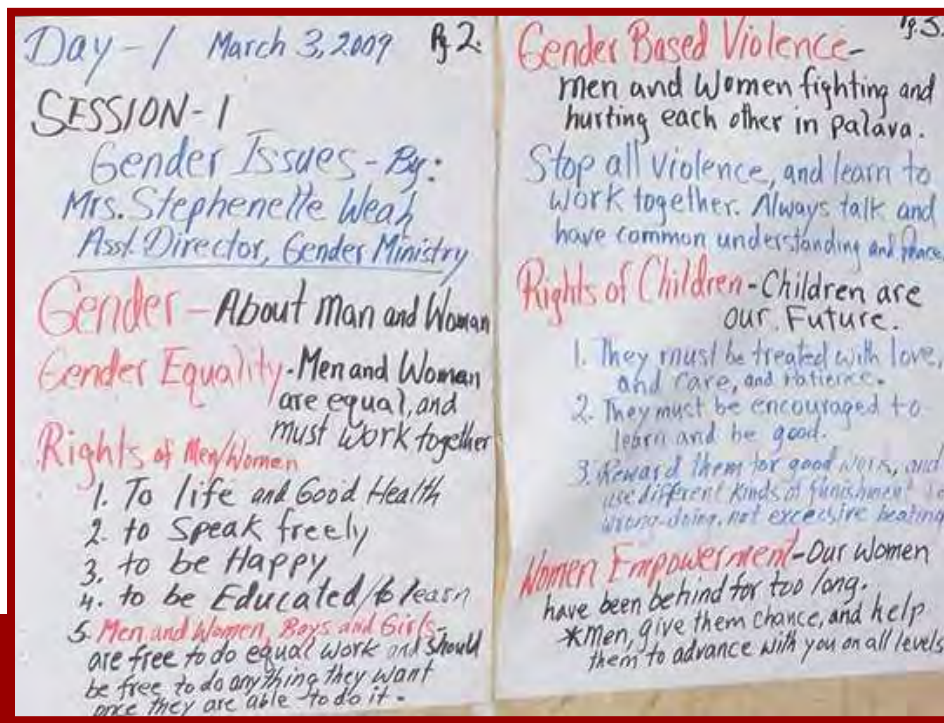 Day-1 March 3, 2009 Pg 2.
SESSION-1
Gender Issues - By:
Mrs. Stephenelle Weah
Asst. Director, Gender Ministry
Gender - About Man and Woman
Gender Equality - Men and Woman
are equal, and
must work together
Rights of Men/Women
1. To life and Good Health
2. to Speak freely
3. to be Happy
4. to be Educated/to learn
5. Men and Women, Boys and Girls-
are free to do equal work and should
be free to do anything they want
once they are able to do it.
Pg. 3.
Gender Based Violence-
men and Women fighting and
hurting each other in palava.
Stop all violence, and learn to
work together. Always talk and
have common understanding and peace.
Rights of Children - Children are
our Future.
1. They must be treated with love,
and care, and patience.
2. They must be encouraged to
learn and be good.
3. Reward them for good work, and
use different kinds of punishment
wrong-doing, not excessive beating
Women Empowerment - Our Women
have been behind for too long.
*Men, give them chance, and help
them to advance with you on all levels